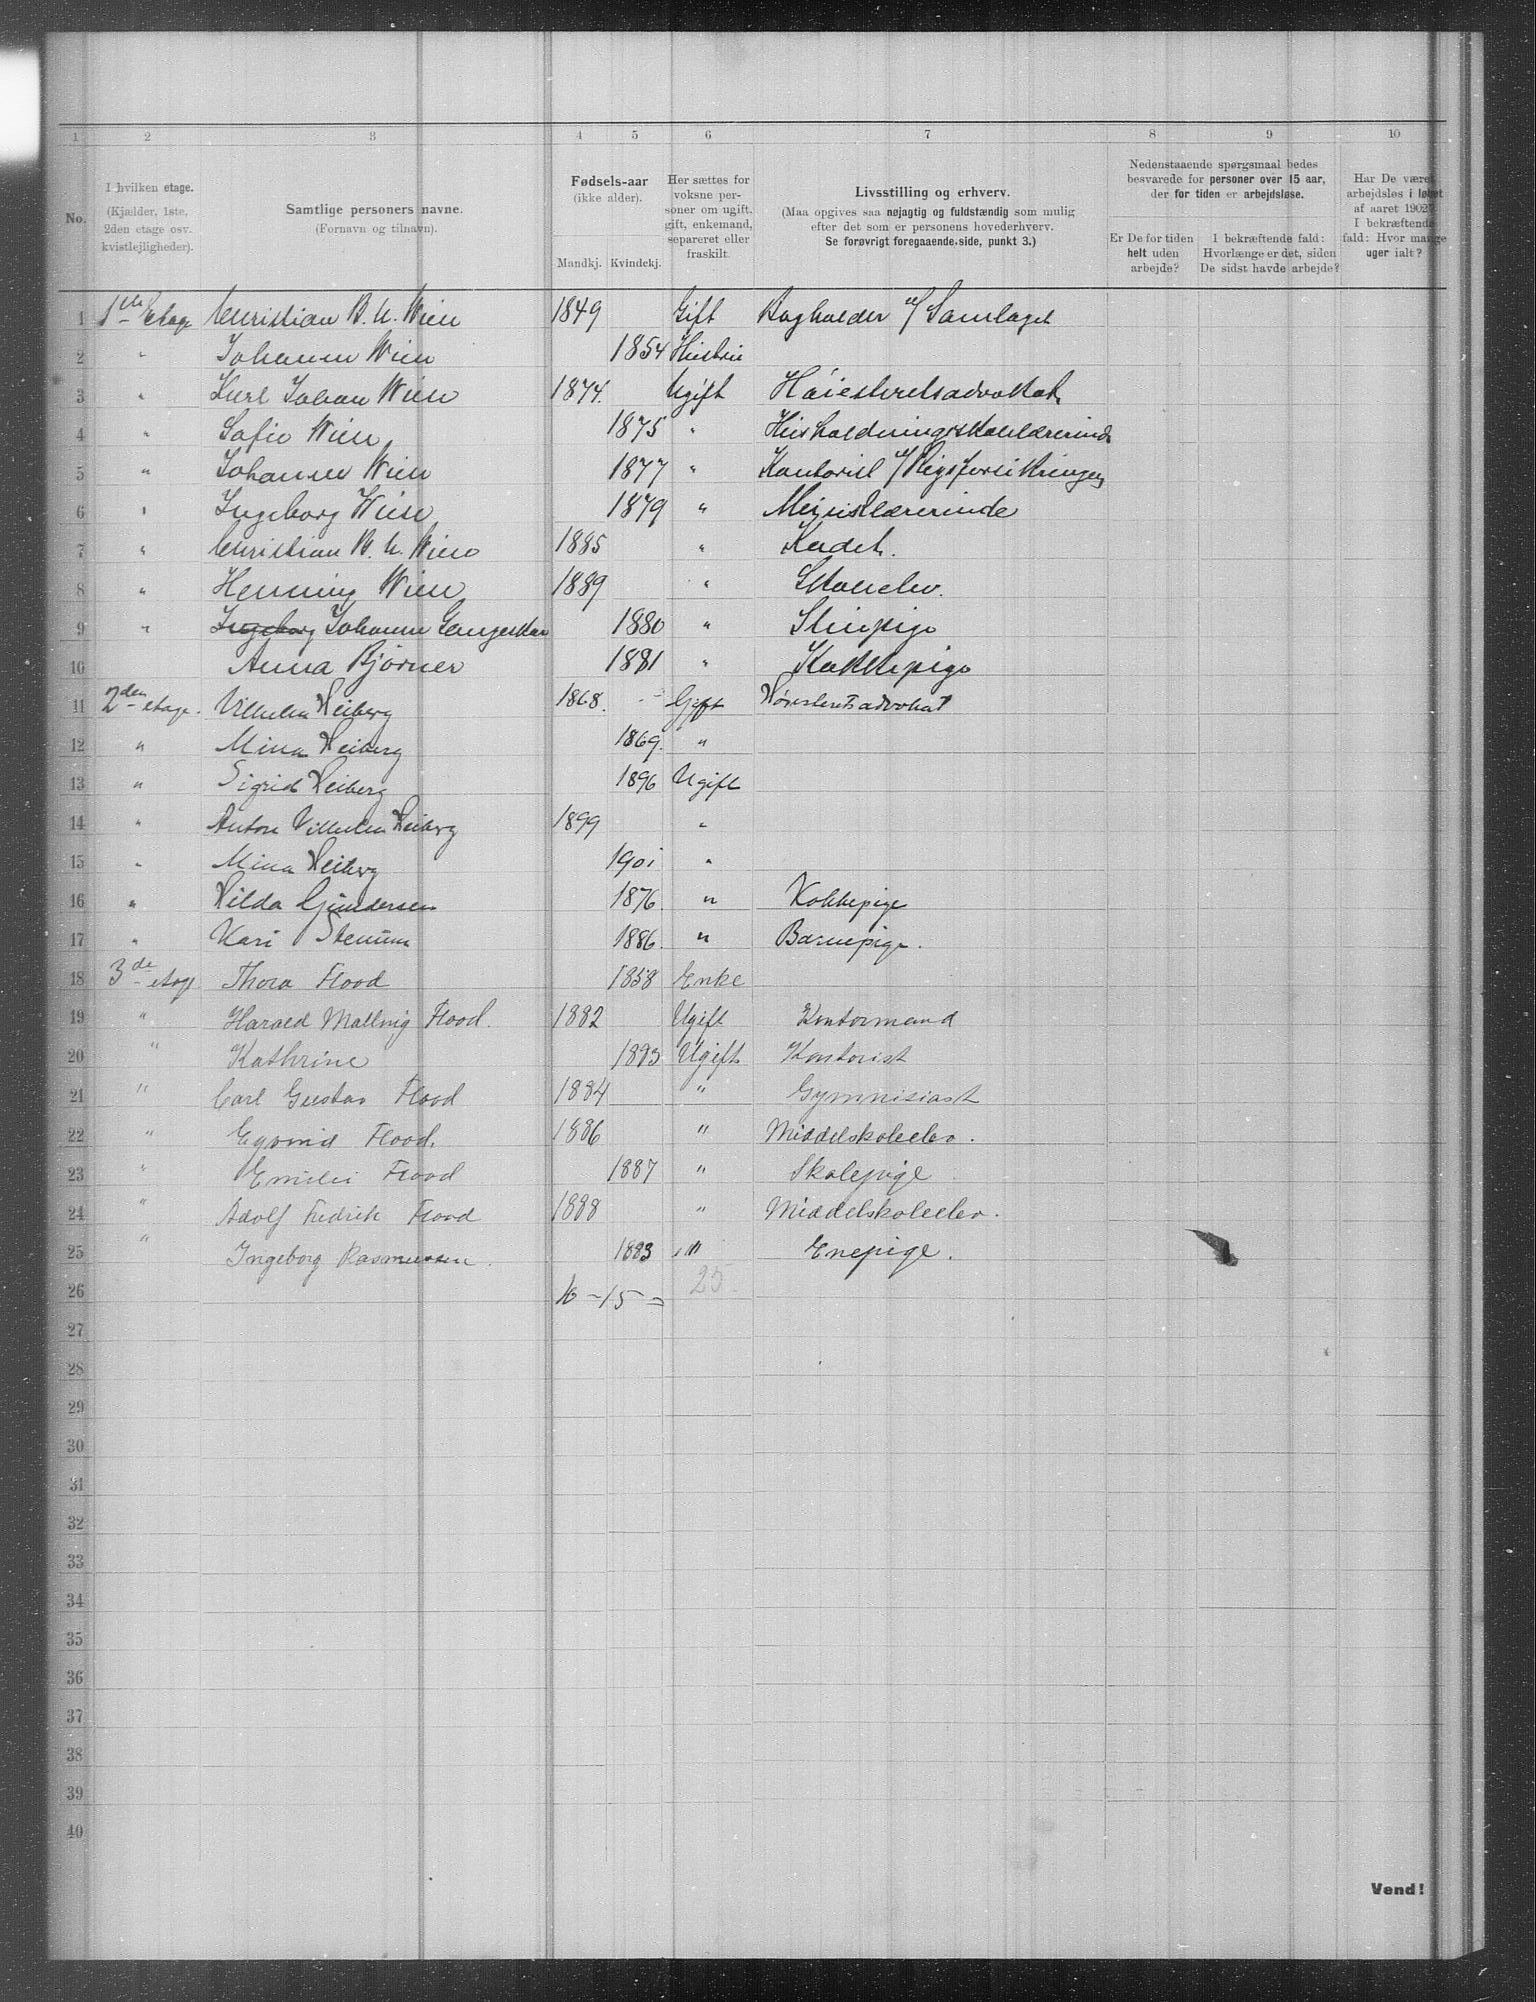 1 2 3 4 5 6 7 8 9 10
No.
I hvilken etage.
(Kjælder, 1ste,
2den etage osv.
kvistlejligheder).
Samtlige personers navne.
(Fornavn og tilnavn).
Fødsels-aar
(ikke alder).
Mandkj. Kvindekj.
Her sættes for
voksne per-
soner om ugift,
gift, enkemand,
separeret eller
fraskilt.
Livsstilling og erhverv.
(Maa opgives saa nøjagtig og fuldstændig som mulig
efter det som er personens hovederhverv.
Se forøvrigt foregaaende side, punkt 3.)
Nedenstaaende spørgsmaal bedes
besvarede for personer over 15 aar,
der for tiden er arbejdsløse.
Er De for tiden
helt uden
arbejde?
I bekræftende fald:
Hvorlænge er det, siden
De sidst havde arbejde?
Har De været
arbejdsløs i løbet
af aaret 1902?
I bekræftende
fald: Hvor mange
uger ialt?
1 1ste Etage Christian B. U. Wien 1849 Gift Bogholder v/ Samlaget
2 " Johanne Wien 1854 Hustru
3 " Karl Johan Wien 1874. Ugift Høiesteretsadvokat
4 " Sofie Wien 1875 " Husholdningsskolelærerinde
5 " Johanne Wien 1877 " Kontorist v/ Rigsforsikringen
6 " Ingeborg Wien 1879 "
7 " Christian B. U. Wien 1885 " Kadet.
8 " Henning Wien 1889 " Skoleelev.
9 " Ingeborg Johanne 1880 " Stuepige
10 Anna Bjørner 1881 " Kokkepige
11 2den etage. Vilhelm Heiberg 1868. Gift Høiesteretsadvokat
12 " Mina Heiberg 1869. "
13 " Sigrid Heiberg 1896 Ugift
14 " Anton Vilhelm Heiberg 1899 "
15 " Mina Heiberg 1901 "
16 " Hilda Gundersen 1876. " Kokkepige
17 " Kari Stenum 1886. " Barnepige.
18 3de etage Thora Flood 1858 Enke
19 " Harald Mallvig Flood. 1882 Ugift Kontormand
20 " Kathrine 1883 Ugift Kontorist
21 " Carl Gustav Flood 1884 " Gymnisiast
22 " Eyvind Flood. 1886 " Middelskoleelev.
23 " Emilie Flood 1887 " Skolepige
24 " Adolf Fredrik Flood 1888 " Middelskoleelev.
25 " Ingeborg Rasmussen. 1883 " Enepige.
26 10 – 15 = 25.
27
28
29
30
31
32
33
34
35
36
37
38
39
40
Vend!